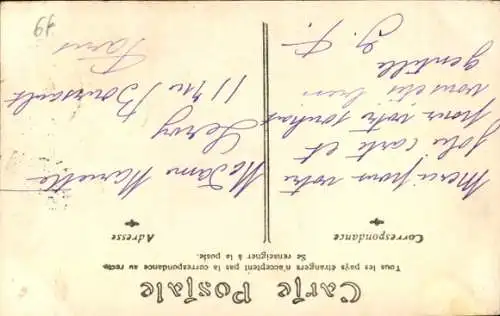 Carte Postale
Tous les pays étrangers n'acceptent pas la correspondance au recto
Se renseigner à la poste.
Correspondance
Adresse
Merci pour votre
jolie carte et
pour votre souhait
vous êtes bien
gentille
J. F.
Madame Mariette
Leroy
11 rue Boursault
Paris
69